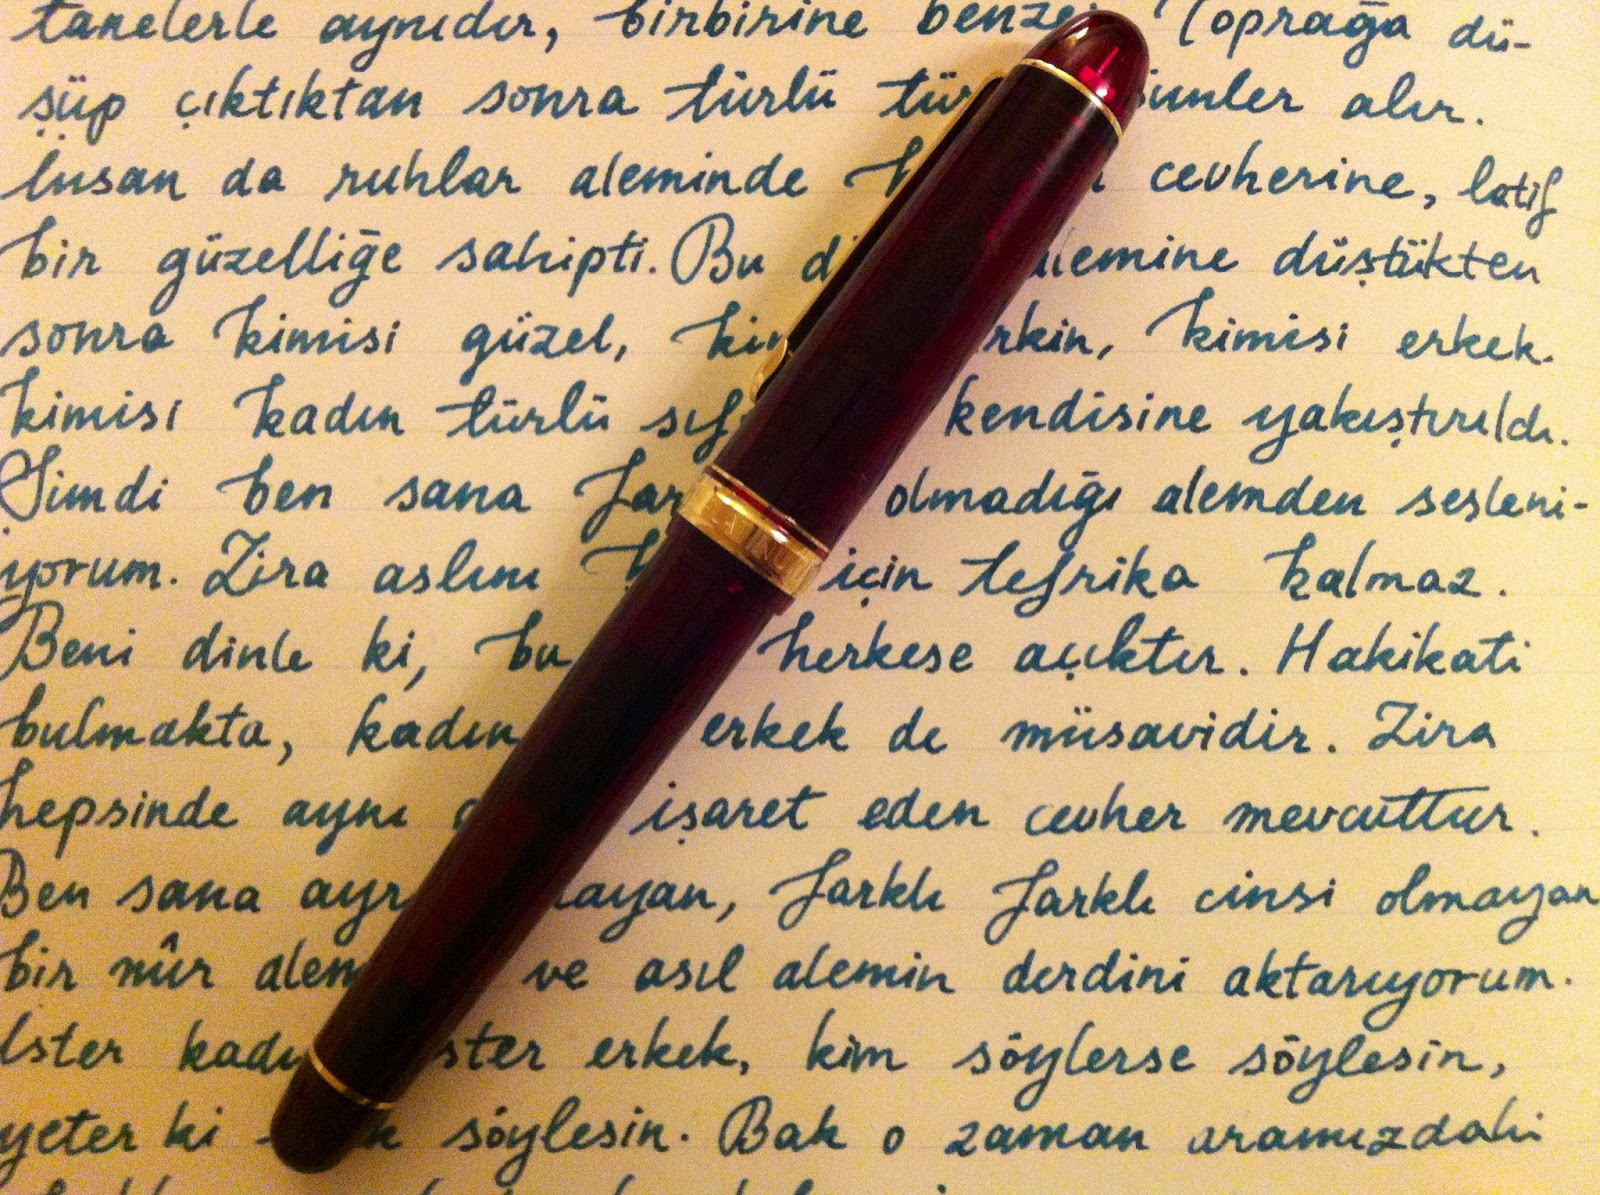 tanelerle aynıdır, birbirine benzer Toprağa dü-
şüp çıktıktan sonra türlü tür alır.
İnsan da ruhlar aleminde cevherine, latif
bir güzelliğe sahipti. Bu alemine düştükten
sonra kimisi güzel, kimisi erkek.
kimisi kadın türlü kendisine yakıştırıldı.
Şimdi ben sana olmadığı alemden sesleni-
yorum. Zira aslını için tefrika kalmaz.
Beni dinle ki, bu herkese açıktır. Hakikati
bulmakta, kadın erkek de müsavidir. Zira
hepsinde aynı işaret eden cevher mevcuttur.
Ben sana farklı farklı cinsi olmayan
bir nûr ve asıl alemin derdini aktarıyorum.
İster ister erkek, kim söylerse söylesin,
yeter ki söylesin. Bak o zaman aramızdaki